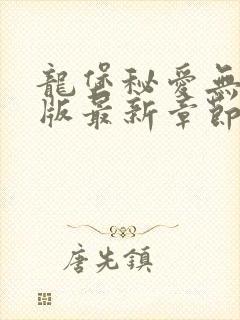 龍堡秘愛無
版最新章節
唐先鎮